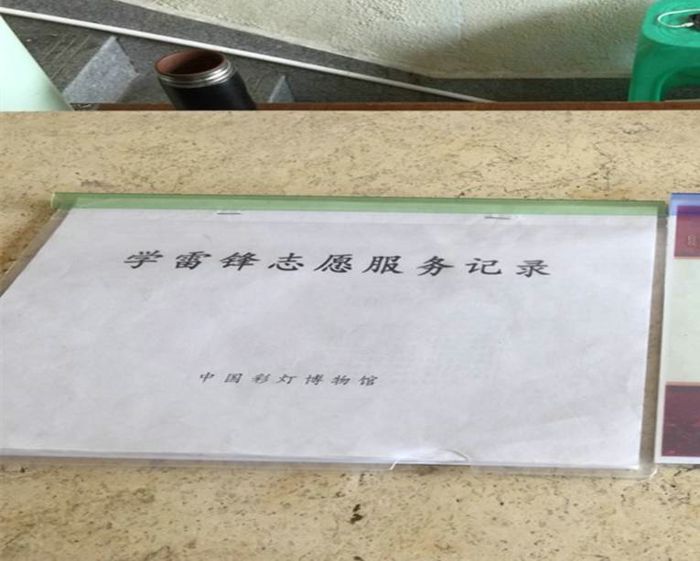 学雷锋志愿服务记录
中国彩灯博物馆